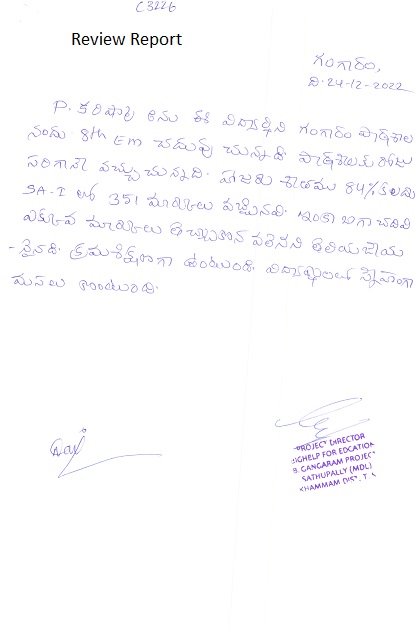 C3226
Review Report
గంగారం,
ది. 24-12-2022
P. కరిష్మా అను ఈ విద్యార్థిని గంగారం పాఠశాల
నందు 8th Em చదువు చున్నది పాఠశాలకు రోజు
సరిగానే వచ్చు చున్నది. హాజరు శాతము 84% కలదు
SA-I లో 351 మార్కులు వచ్చినవి. ఇంకా బాగా చదివి
ఎక్కువ మార్కులు తెచ్చుకొన వలెనని తెలియజేయ
- నైనది. క్రమశిక్షణగా ఉంటుంది. విద్యార్థులతో స్నేహంగా
మసలు కొంటుంది.
PROJECT DIRECTOR
HELP FOR EDCATION
B. GANGARAM PROJECT
SATHUPALLY (MDL)
KHAMMAM DIST. T.